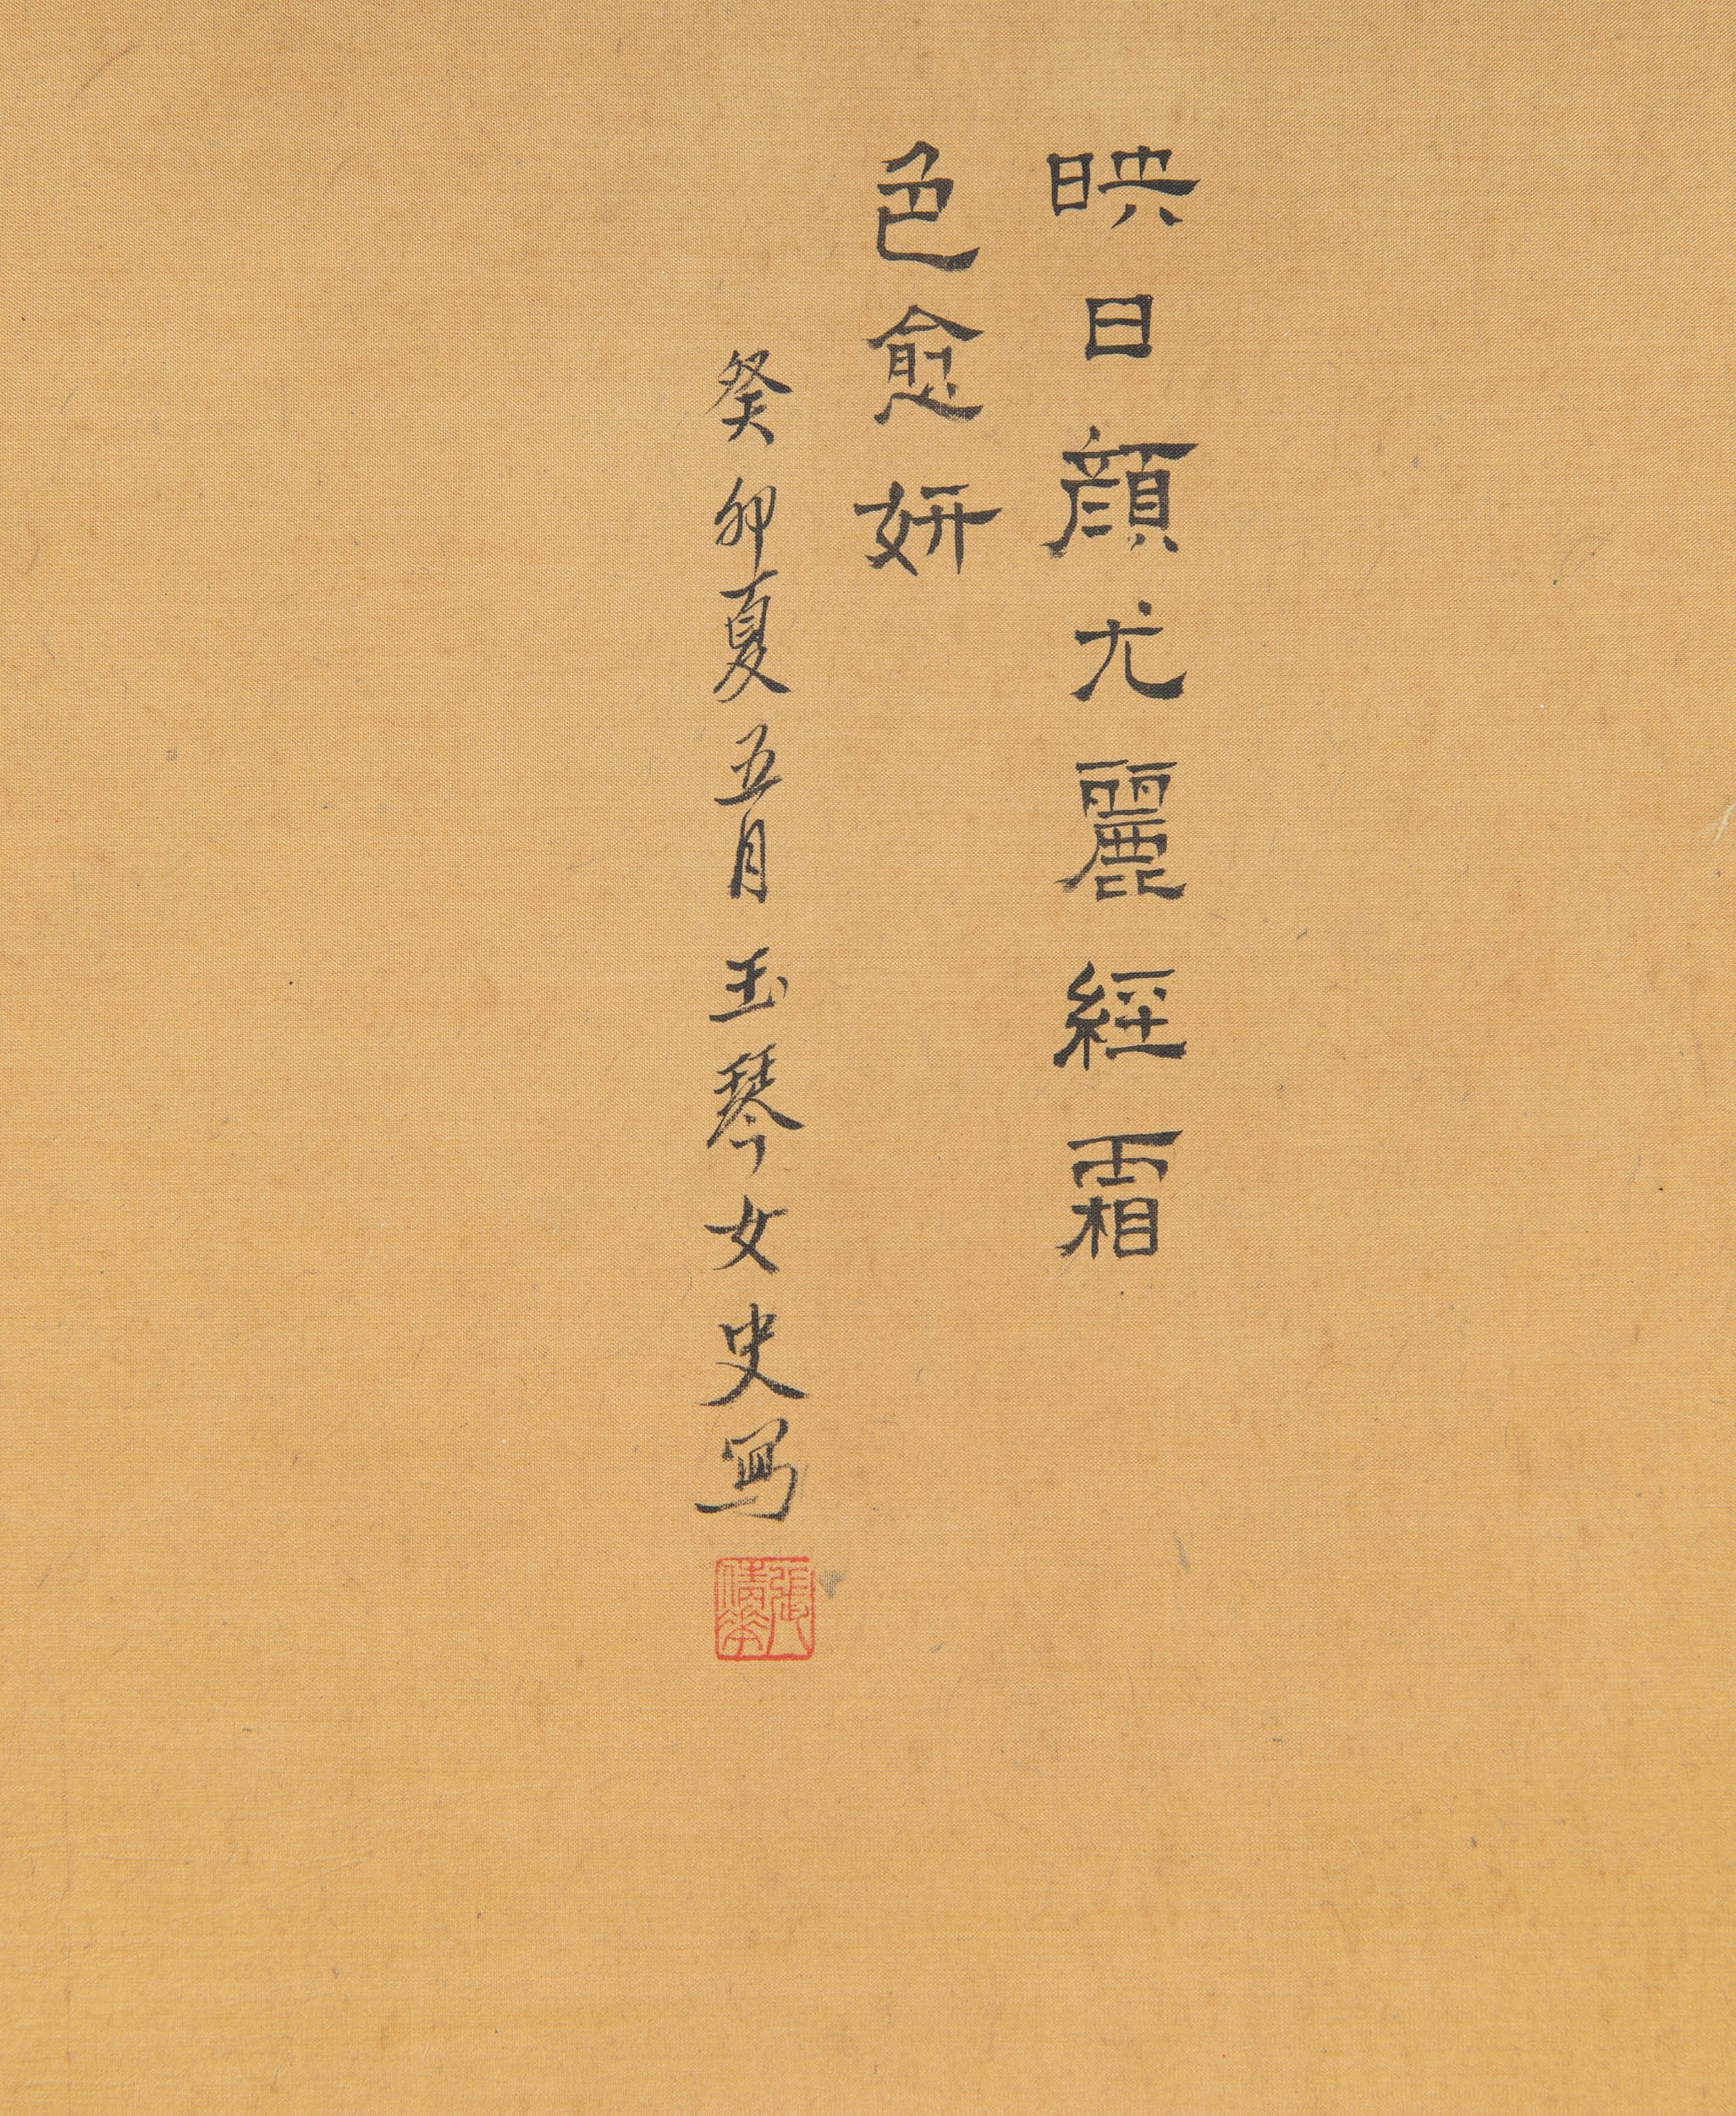 映日顏尤麗經霜
色愈妍
癸卯夏五月玉琴女史寫
張倩華